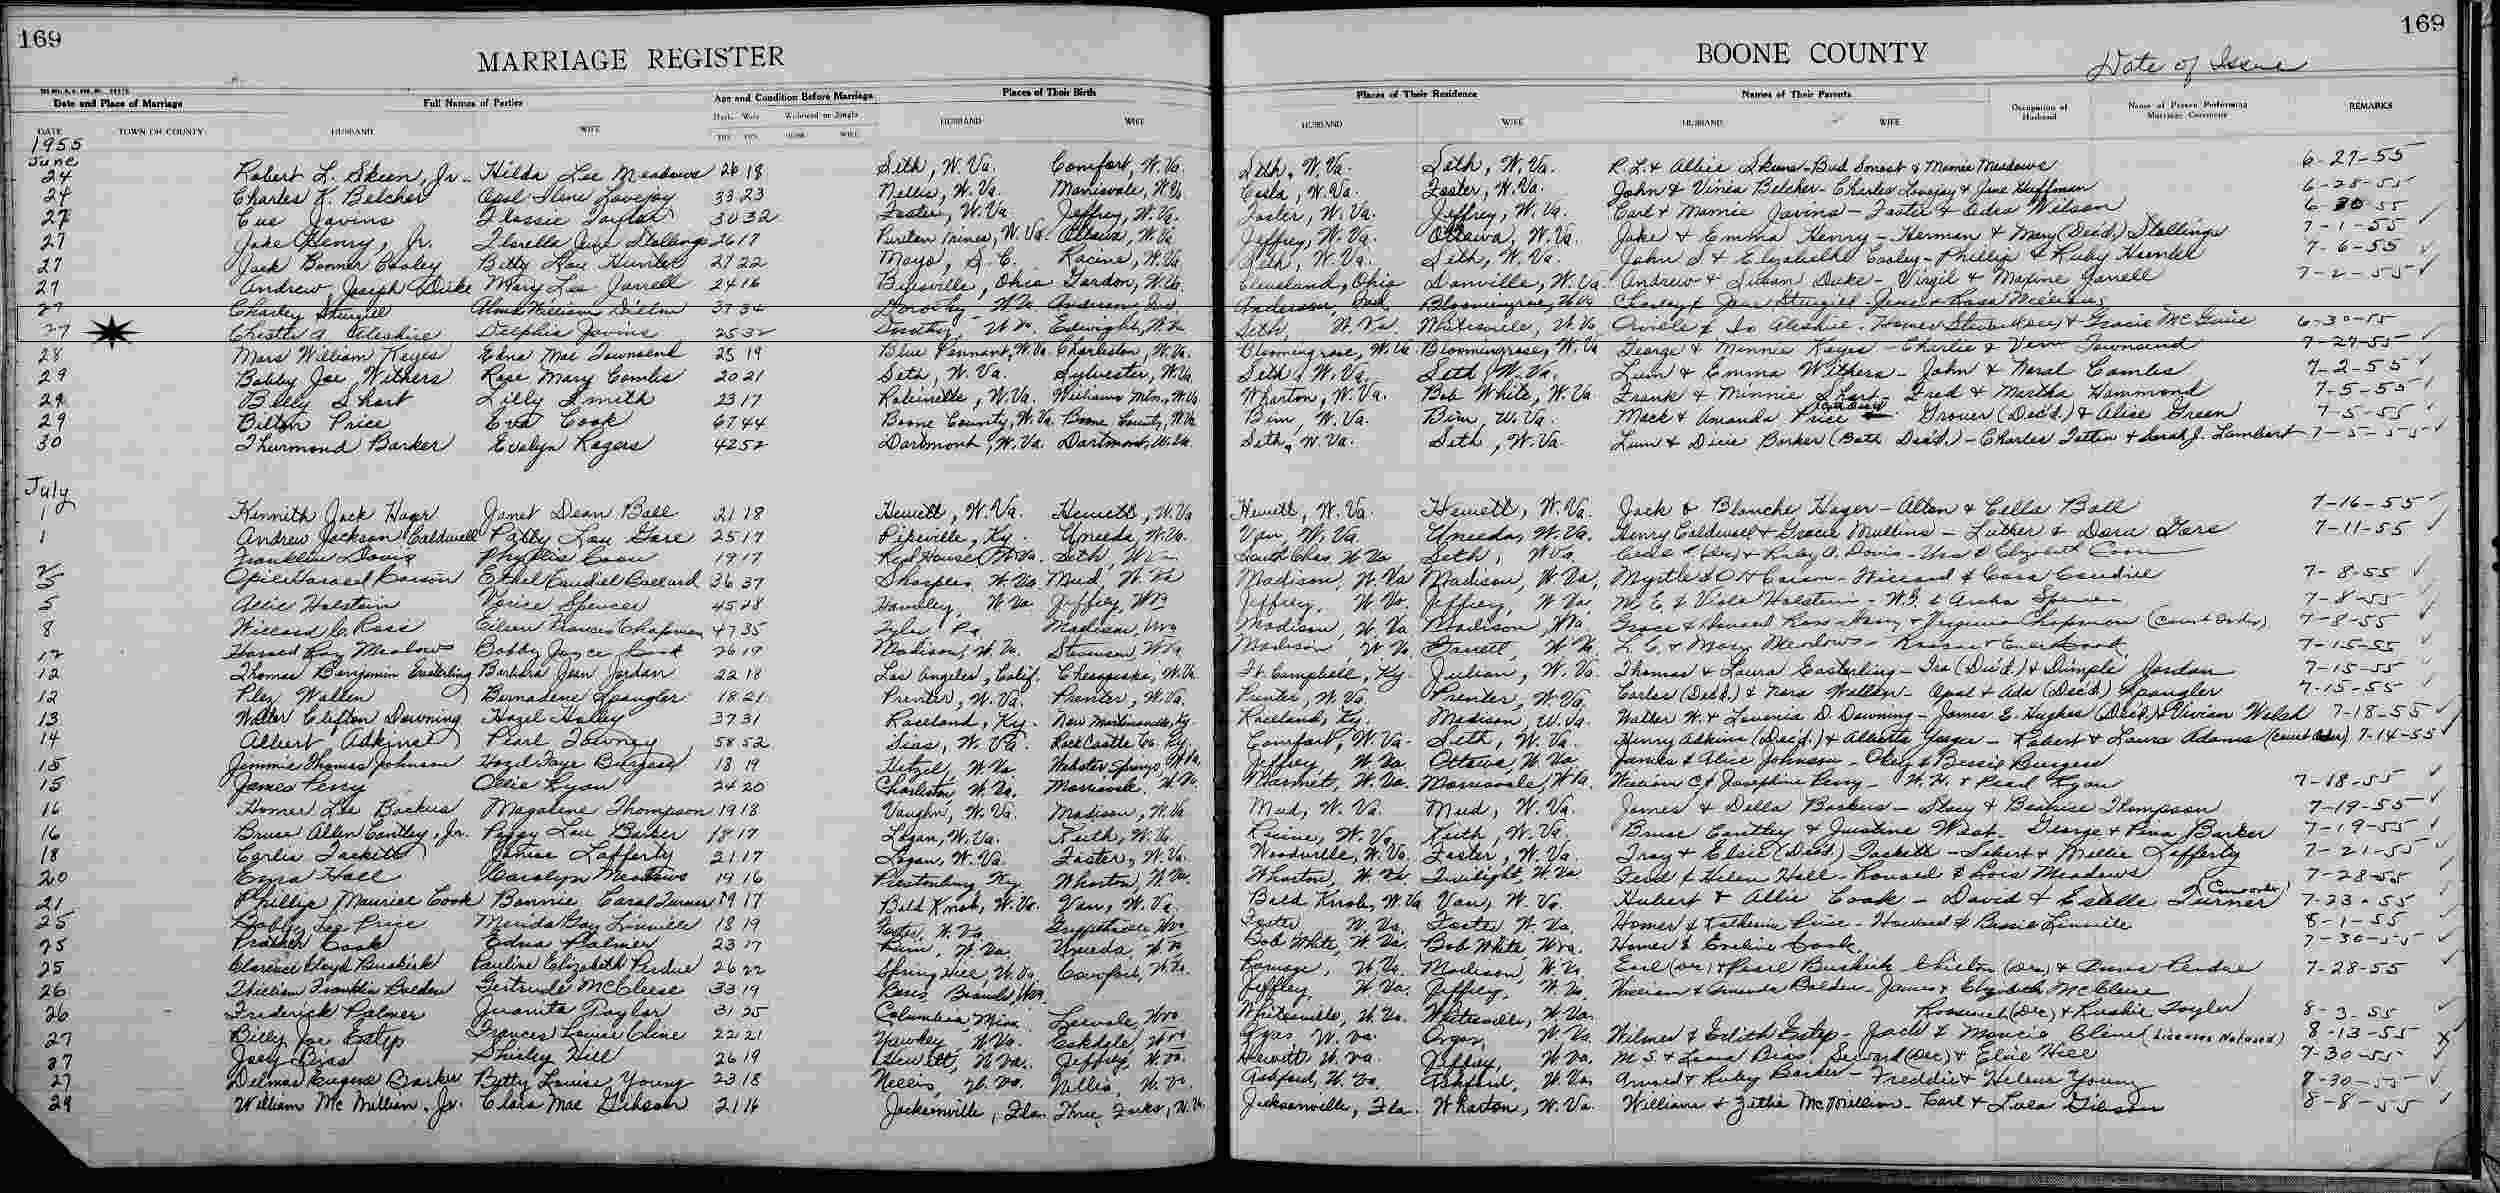 169
169
MARRIAGE REGISTER
BOONE COUNTY
Date of Issue
Date and Place of Marriage Full Names of Parties Age and Condition Before Marriage Places of Their Birth Places of Their Residence Names of Their Parents Occupation of Husband Name of Person Performing Marriage Ceremony REMARKS
DATE TOWN OR COUNTY HUSBAND WIFE Husb. Wife Widowed or Single HUSBAND WIFE HUSBAND WIFE HUSBAND WIFE
YRS YRS HUSB. WIFE
1955
June
24 Robert L. Skeen, Jr. Hilda Lee Meadows 26 18 Seth, W. Va. Comfort, W. Va. Seth, W. Va. Seth, W. Va. R. L. & Allie Skeens - Bud & Mamie Meadows 6-27-55
24 Charles K. Belcher Opal Ilene Lovejoy 33 23 Nellis, W. Va. Morrisvale, W. Va. Costa, W. Va. Foster, W. Va. John & Vinia Belcher - Charles Lovejoy & Jane Huffman 6-28-55
27 Cue Javins Flossie Taylor 30 32 Foster, W. Va. Jeffrey, W. Va. Foster, W. Va. Jeffrey, W. Va. Carl & Mamie Javins - Foster & Edra Wilson 6-30-55
27 Jake Henry, Jr. Florella June Stallings 26 17 Puritan Mines, W. Va. Ottawa, W. Va. Jeffrey, W. Va. Ottawa, W. Va. Jake & Emma Henry - Herman & Mary (Dec'd.) Stallings 7-1-55
27 Jack Boomer Cooley Betty Lou Hunter 27 22 Mayo, S. C. Racine, W. Va. Seth, W. Va. Seth, W. Va. John S & Elizabeth Cooley - Phillip & Ruby Hunter 7-6-55
27 Andrew Joseph Duke Mary Lee Jarrell 24 16 Byesville, Ohio Gordon, W. Va. Cleveland, Ohio Danville, W. Va. Andrew & Susan Duke - Virgil & Maxine Jarrell 7-2-55
27 Charley Sturgill Dillon 37 34 Dorothy W. Va. Anderson, Ind. Anderson, Ind. Bloomingrose, W. Va. Charley & Sturgill -
27 Chester A. Aleshire Delphia Javins 25 32 Dorothy, W. Va. Edwight, W. Va. Seth, W. Va. Whitesville, W. Va. Orville & Aleshire - Homer (Dec) & Gracie McGuire 6-30-55
28 Mars William Keyes Edna Mae Townsend 25 19 Blue Pennant, W. Va. Charleston, W. Va. Bloomingrose, W. Va. Bloomingrose, W. Va. George & Minnie Keyes - Charlie & Vera Townsend 7-27-55
29 Bobby Joe Withers Rose Mary Combs 20 21 Seth, W. Va. Sylvester, W. Va. Seth, W. Va. Seth, W. Va. Lum & Emma Withers - John & Norah Combs 7-2-55
29 Billy Short Lilly Smith 23 17 Robinette, W. Va. Williams Mtn., W. Va. Wharton, W. Va. Bob White, W. Va. Frank & Minnie Short - Fred & Martha Hammond 7-5-55
29 Bilton Price Eva Cook 67 44 Boone County, W. Va. Boone County, W. Va. Bim W. Va. Bim, W. Va. Mack & Amanda Price Grover (Dec'd.) & Alice Green 7-5-55
30 Thurmond Barker Evelyn Rogers 42 52 Dartmont, W. Va. Dartmont, W. Va. Seth, W. Va. Seth, W. Va. Lum & Dixie Barker (Both Dec'd.) - Charles & Sarah J. Lambert 7-5-55
July
1 Kenneth Jack Hager Janet Dean Ball 21 18 Hewett, W. Va. Hewett, W. Va. Hewett, W. Va. Hewett, W. Va. Jack & Blanche Hager - Allen & Cella Ball 7-16-55
1 Andrew Jackson Caldwell Patty Lou Gore 25 17 Pikeville, Ky. Uneeda, W. Va. Van, W. Va. Uneeda, W. Va. Henry Caldwell & Gracie Mullins - Luther & Dora Gore 7-11-55
2 Franklin Davis Phyllis Coon 19 17 Red House, W. Va. Seth, W. Va. South Chas. W. Va. Seth, W. Va. & Ruby A. Davis - & Elizabeth Coon
5 Opie Harmon Carson Ethel Caudill Ballard 36 37 Sharples, W. Va. Mud, W. Va. Madison, W. Va. Madison, W. Va. Myrtle & O H Carson - Willard & Cora Caudill 7-8-55
5 Allie Holstein Spencer 45 28 Handley, W. Va. Jeffrey, W. Va. Jeffrey, W. Va. Jeffrey, W. Va. M. E. & Viola Holstein - W. G. & Spencer 7-8-55
8 Willard C. Ross Eileen Frances Chapman 47 35 Tyler, Pa. Madison, W. Va. Madison, W. Va. Madison, W. Va. Grace & Howard Ross - & Virginia Chapman (Court Order) 7-8-55
12 Harold Ray Meadows Bobby Joyce Cook 26 19 Madison, W. Va. W. Va. Madison W. Va. W. Va. L. C. & Mary Meadows - Cook 7-15-55
12 Thomas Benjamin Easterling Barbara Jean Jordan 22 18 Los Angeles, Calif. Chesapeake, W. Va. Ft. Campbell, Ky. Julian, W. Va. Thomas & Laura Easterling - Ira (Dec'd.) & Dimple Jordan 7-15-55
12 Plez Wallen Bernadene Spangler 18 21 Prenter, W. Va. Prenter, W. Va. Prenter, W. Va. Prenter, W. Va. Carlos (Dec'd.) & Nora Wallen - Opal & Ada (Dec'd.) Spangler 7-15-55
13 Walter Clifton Downing Hazel Holley 37 31 Raceland, Ky. New Martinsville, Ky. Raceland, Ky. Madison, W. Va. Walter W. & Lovenia D. Downing - James E. Hughes (Dec'd.) & Vivian Welsh 7-18-55
14 Albert Adkins Pearl Towney 58 52 Sias, W. Va. Rock Castle Co. Ky. Comfort, W. Va. Seth, W. Va. Henry Adkins (Dec'd.) & Yeager - Robert & Laura Adams (Court Order) 7-14-55
15 Jimmie Thomas Johnson Hazel Faye Burgess 18 19 Hetzel, W. Va. Webster Springs, W. Va. Jeffrey, W. Va. Ottawa, W. Va. James & Alice Johnson - Okey & Bessie Burgess
15 James Perry Ollie Ryan 24 20 Charleston, W. Va. Morrisvale, W. Va. Marmet, W. Va. Morrisvale, W. Va. William C & Josephine Perry - W. H. & Pearl Ryan 7-18-55
16 Homer Lee Backus Magalene Thompson 19 18 Vaughn, W. Va. Madison, W. Va. Mud, W. Va. Mud, W. Va. James & Della Backus - Stacy & Beatrice Thompson 7-19-55
16 Bruce Allen Cantley, Jr. Peggy Lou Barker 18 17 Logan, W. Va. Keith, W. Va. Racine, W. Va. Keith, W. Va. Bruce Cantley & Justine West - George & Pina Barker 7-19-55
18 Carlis Tackett Janice Lafferty 21 17 Logan, W. Va. Foster, W. Va. Woodville, W. Va. Foster, W. Va. Troy & Elsie (Dec'd.) Tackett - Sebert & Millie Lafferty 7-21-55
20 Ezra Hall Carolyn Meadows 19 16 Prestonburg, Ky Wharton, W. Va. Wharton, W. Va. Twilight, W. Va. & Helen Hall - Ronald & Lois Meadows 7-28-55
21 Phillip Maurice Cook Bonnie Carol Turner 19 17 Bald Knob, W. Va. Van, W. Va. Bald Knob, W. Va. Van, W. Va. Hubert & Allie Cook - David & Estelle Turner (Court order) 7-23-55
25 Bobby Lee Price Merida Gay Linville 18 19 Foster, W. Va. Griffithsville, W. Va. Foster W. Va. Foster W. Va. Homer & Katherine Price - Howard & Bessie Linville 8-1-55
25 Prather Cook Edna Palmer 23 17 W. Va. Uneeda, W. Va. Bob White, W. Va. Bob White, W. Va. Homer & Eveline Cook 7-30-55
25 Clarence Cloyd Buskirk Pauline Elizabeth Perdue 26 22 Spring Hill, W. Va. Comfort, W. Va. Ramage, W. Va. Madison, W. Va. Earl (Dec) & Pearl Buskirk - Chilton (Dec) & Perdue 7-28-55
26 William Franklin Bolden Gertrude McCleese 33 19 Jeffrey, W. Va. Jeffrey, W. Va. William & Amanda Bolden - James & Elizabeth McCleese
26 Frederick Palmer Juanita Taylor 31 25 Columbia, Miss. W. Va. Whitesville, W. Va. Whitesville, W. Va. Roosevelt (Dec) & Taylor 8-3-55
27 Billy Joe Estep Frances Louise Cline 22 21 Yawkey, W. Va. Eskdale, W. Va. Orgas, W. Va. Orgas, W. Va. Wilmer & Edith Estep - Jack & Cline (License Not used) 8-13-55 X
27 Joey Bias Shirley Hill 26 19 Hewett, W. Va. Jeffrey, W. Va. Hewett, W. Va. Jeffrey, W. Va. M. S. & Bias, Seward (Dec) & Elsie Hill 7-30-55
27 Delmas Eugene Barker Betty Louise Young 23 18 Nellis, W. Va. Nellis, W. Va. Ashford, W. Va. Ashford, W. Va. Arnold & Ruby Barker - Freddie & Helena Young 7-30-55
29 William McMillian, Jr. Clara Mae Gibson 21 16 Jacksonville, Fla. Three Forks, W. Va. Jacksonville, Fla. Wharton, W. Va. William & McMillian - Carl & Lula Gibson 8-8-55